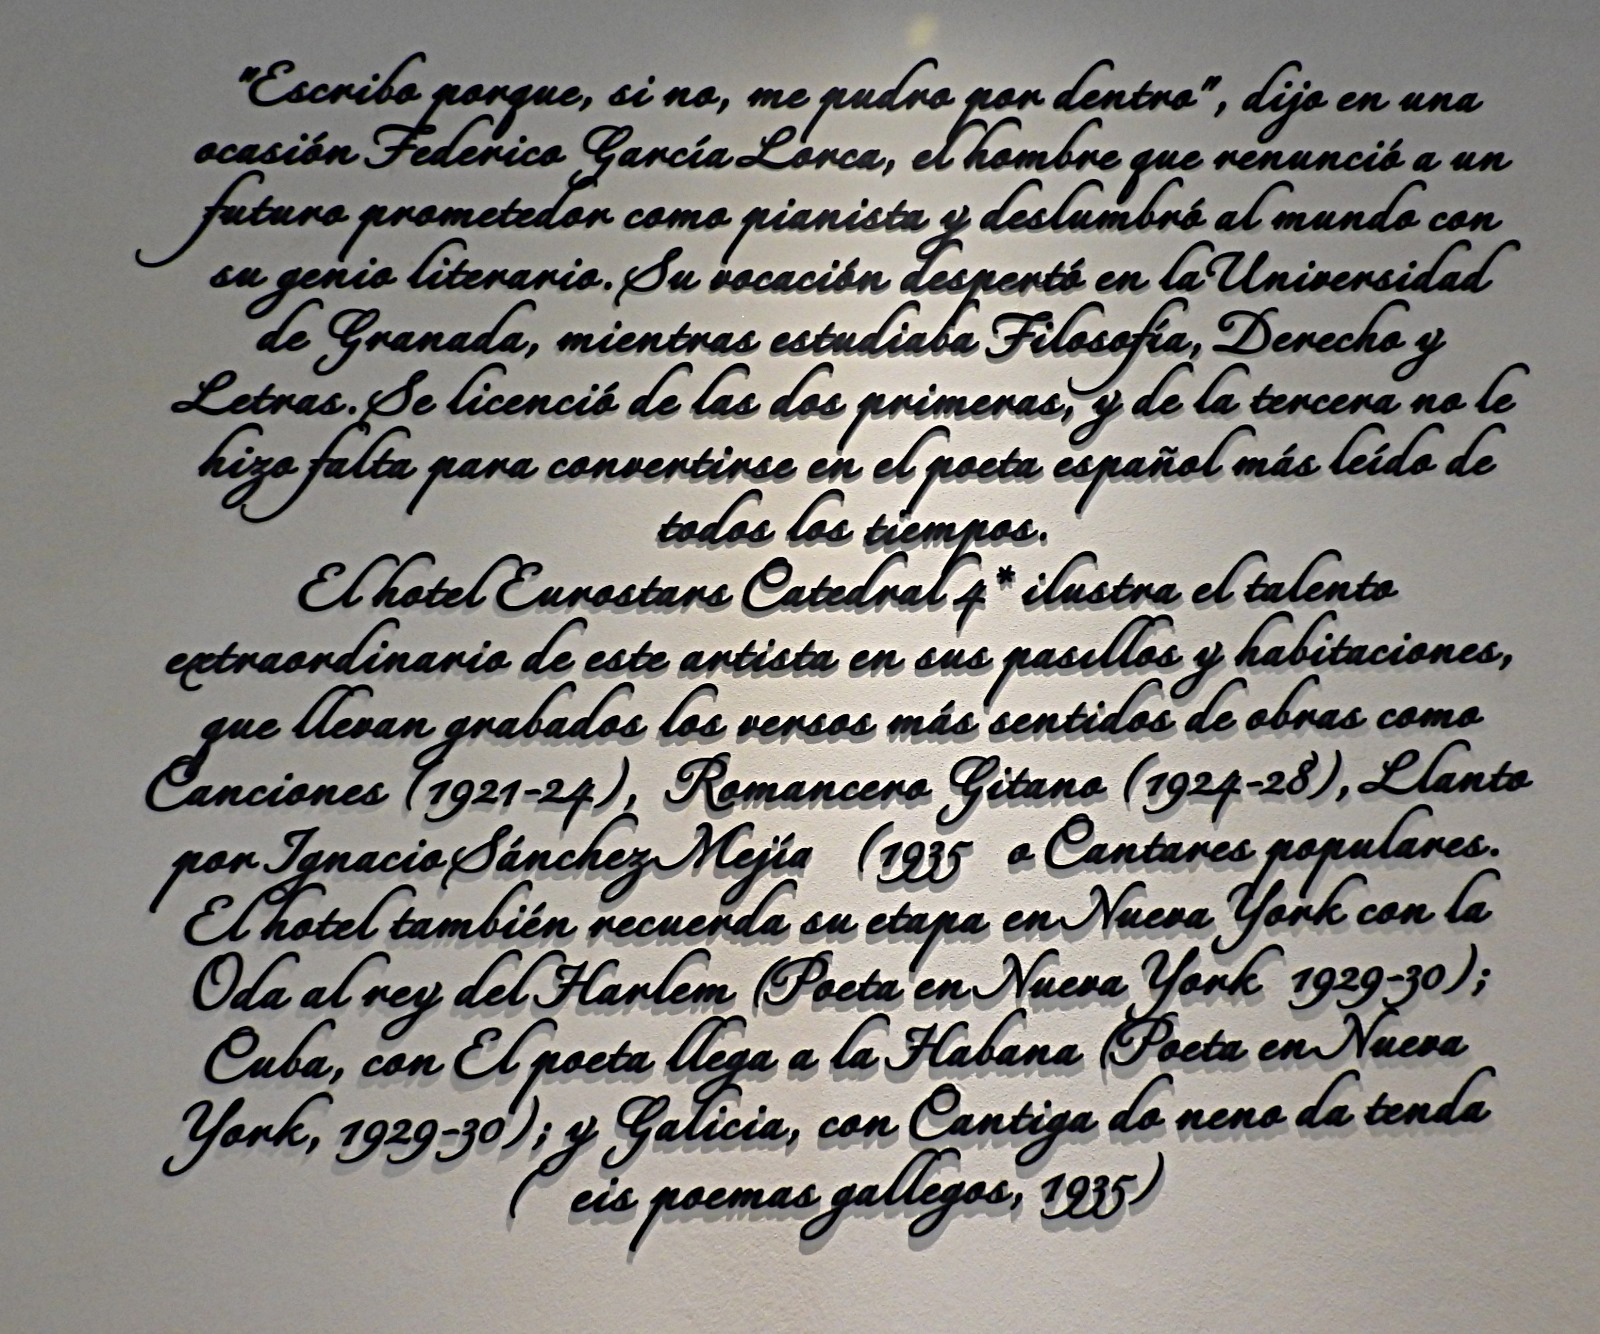 "Escribo porque, si no, me pudro por dentro", dijo en una
ocasión Federico García Lorca, el hombre que renunció a un
futuro prometedor como pianista y deslumbró al mundo con
su genio literario. Su vocación despertó en la Universidad
de Granada, mientras estudiaba Filosofía, Derecho y
Letras. Se licenció de las dos primeras, y de la tercera no le
hizo falta para convertirse en el poeta español más leído de
todos los tiempos.
El hotel Eurostars Catedral 4* ilustra el talento
extraordinario de este artista en sus pasillos y habitaciones,
que llevan grabados los versos más sentidos de obras como
Canciones (1921-24), Romancero Gitano (1924-28), Llanto
por Ignacio Sánchez Mejía (1935 o Cantares populares.
El hotel también recuerda su etapa en Nueva York con la
Oda al rey del Harlem (Poeta en Nueva York 1929-30);
Cuba, con El poeta llega a la Habana (Poeta en Nueva
York, 1929-30); y Galicia, con Cantiga do neno da tenda
( eis poemas gallegos, 1935)